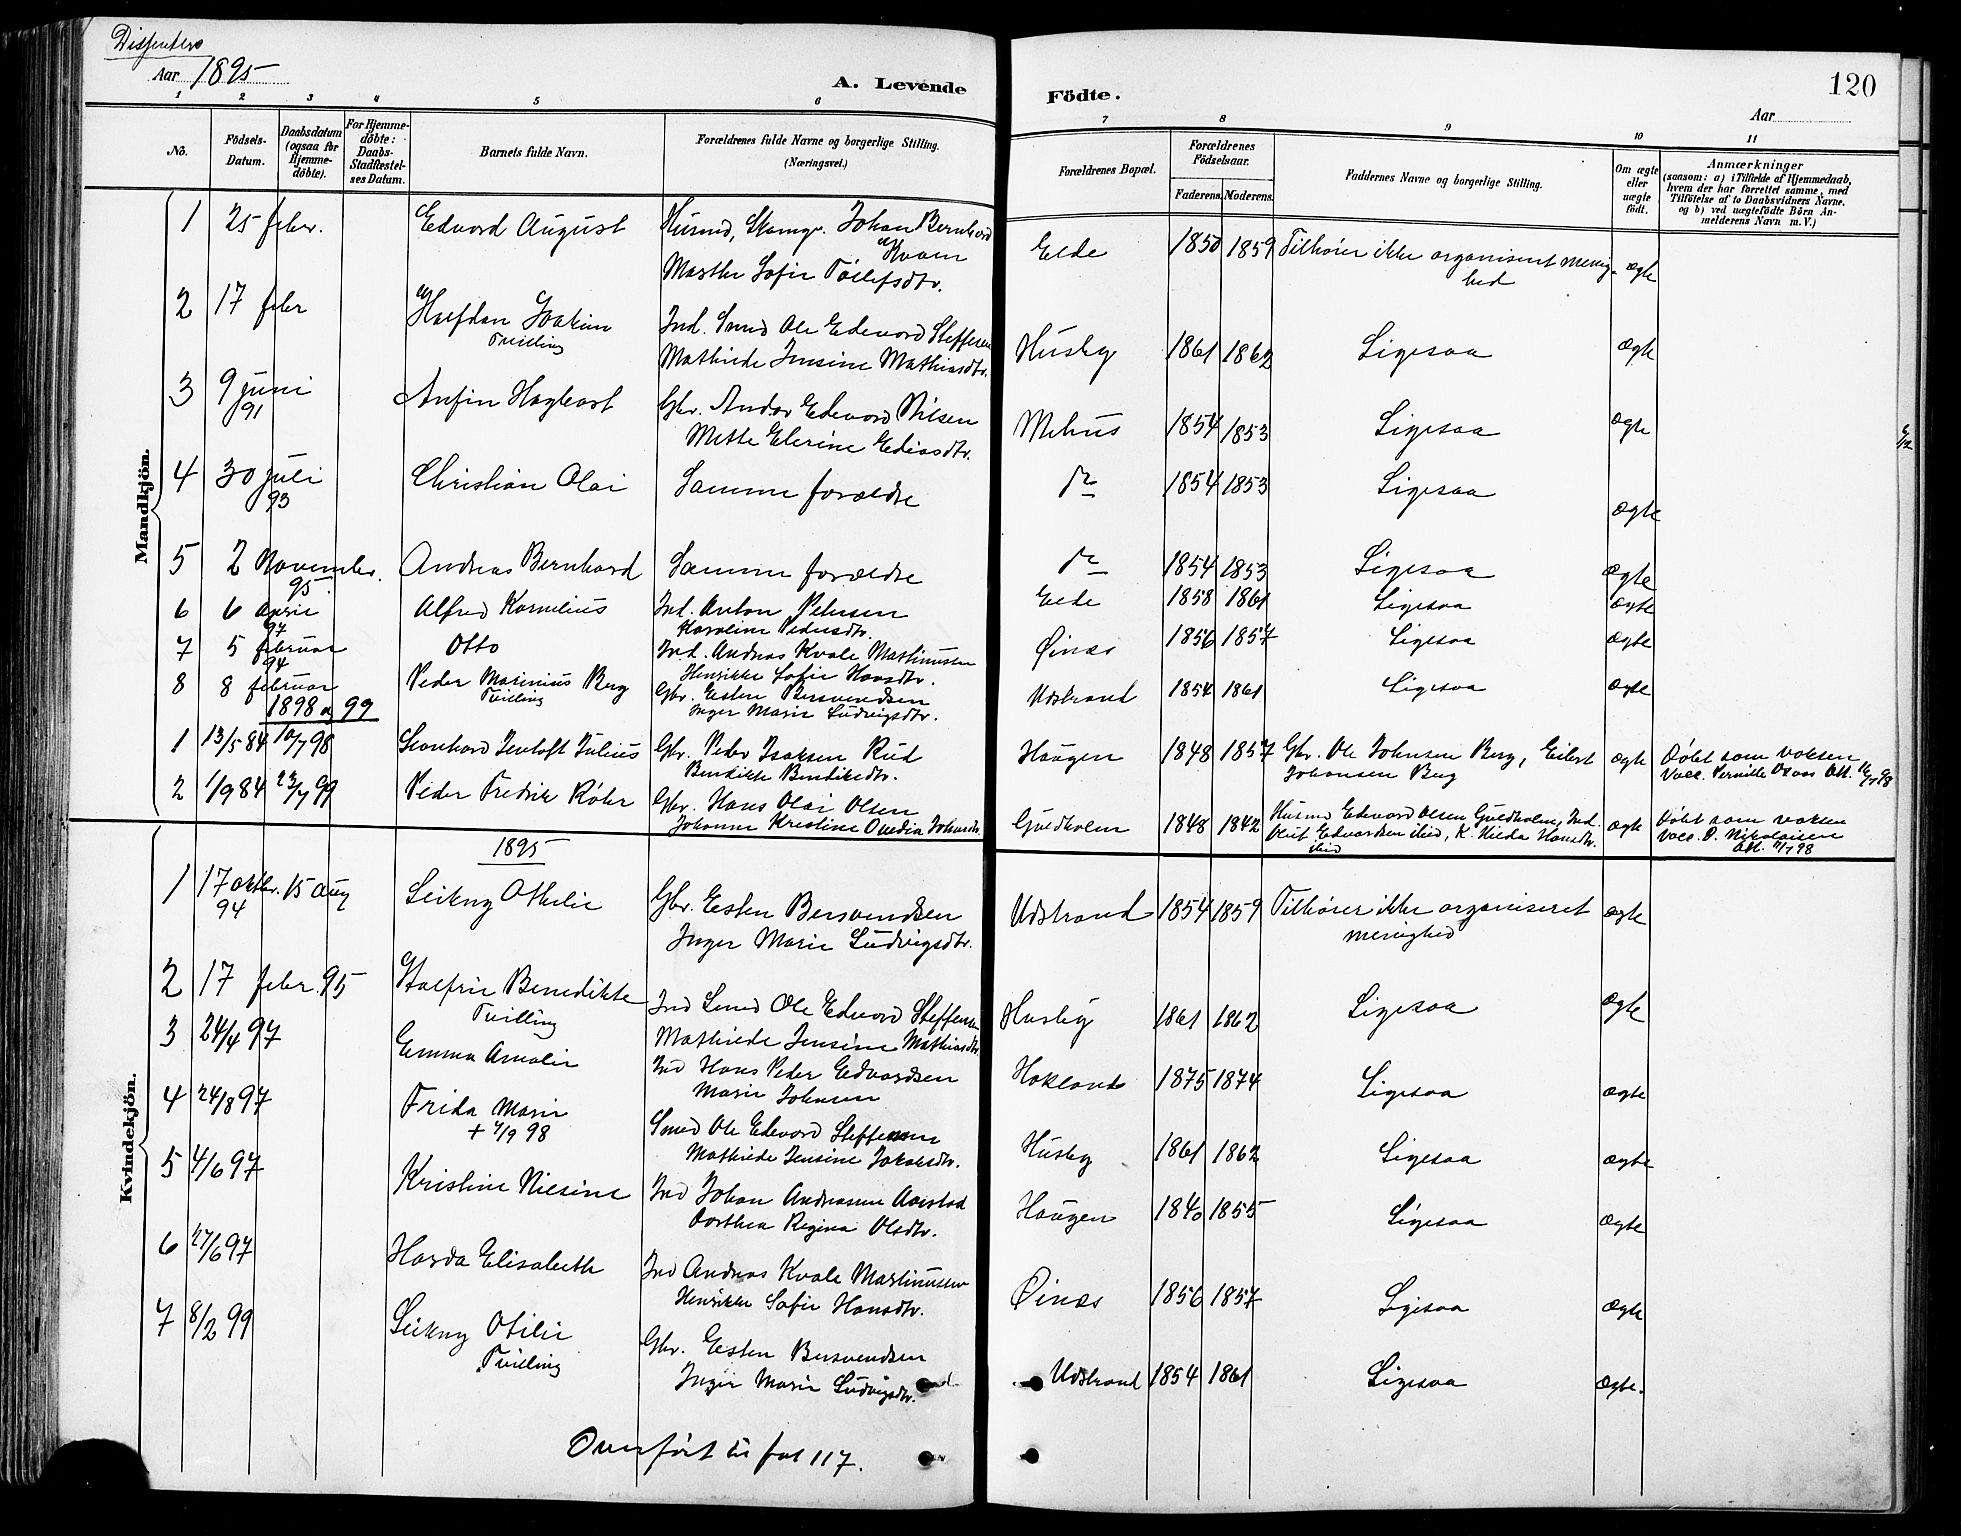 Dissentere
Aar 1895
A. Levende
Födte.
120
Aar
1 2 3 4 5 6 7 8 9 10 11
No.
Födsels-Datum.
Daabsdatum (ogsaa for Hjemme-döbte).
For Hjemme-döbte: Daabs-Stadfæstel-ses Datum.
Barnets fulde Navn.
Forældrenes fulde Navne og borgerlige Stilling. (Næringsvei.)
Forældrenes Bopæl.
Forældrenes Födselsaar.
Faderens. Moderens.
Faddernes Navne og borgerlige Stilling.
Om ægte eller uægte födt.
Anmærkninger
(saasom: a) i Tilfælde af Hjemmedaab,
hvem der har forrettet samme, med
Tilföielse af to Daabsvidners Navne,
og b) ved uægtefödte Börn An-
melderens Navn m. V.)
Mandkjön.
1 25 febr. Edvard August Husmd, Johan Bernhard Kvam Eide 1850 1859 Tilhører ikke organiseret menig- ægte
Marthe Sofie hed
2 17 febr Halfdan Joakim Ind. Smed Ole Edevard Steffensen Husby 1861 1862 Ligesaa ægte
Tvilling Mathilde Jensine Mathiasdtr.
3 9 juni Anfin Hagbart Gbr. Andor Edevard Nilsen Mehus 1854 1853 Ligesaa ægte
91 Mette Elerine Ediasdtr.
4 30 juli Christian Olai Samme forældre do 1854 1853 Ligesaa ægte
93
5 2 November. Andreas Bernhard Samme forældre do 1854 1853 Ligesaa ægte
95.
6 6 April Alfred Kornelius Ind. Anton Petersen Eide 1858 1861 Ligesaa ægte
97 Karoline Pedersdtr.
7 5 februar Otto Ind. Andreas Kvale Martinussen Øinæs 1856 1857 Ligesaa ægte
94 Henrikke Sofie Hansdtr.
8 8 februar Peder Marinius Berg Gbr. Esten Bersvendsen Udstrand 1854 1861 Ligesaa ægte
Tvilling Inger Marie Ludvigsdtr.
1898 og 99
1 13/5 84 10/7 98 Leonhard Jentoft Julius Gbr. Peder Isaksen Rud Haugen 1848 1857 Gbr. Ole Johnsen Berg, Eilert ægte Døbt som voksen
Bendikte Bendiksdtr. Johansen Berg Vacc. Pernille Att.
2 1/9 84 23/7 99 Peder Fredrik Røhr Gbr. Hans Olai Olsen Guldholm 1848 1842 Husmd Edevard Olsen Guldholm, Ind. ægte Døbt som voksen
Johanne Kristine Ovedia Johnsdtr. Oluf Edvardsen ibid, K. Hilda Hansdtr. Vacc. O. Nikolaisen
ibid Att. 98
Kvindekjön.
1895
1 17 oktbr. 15 Aug Leikny Othilie Gbr. Esten Bersvendsen Udstrand 1854 1859 Tilhører ikke organiseret ægte
94 Inger Marie Ludvigsdtr. menighed
2 17 febr. 95 Halfrid Benedikte Ind Smed Ole Edvard Steffensen Husby 1861 1862 Ligesaa ægte
Tvilling Mathilde Jensine Mathiasdtr.
3 24/4 97 Emma Amalie Ind Hans Peder Edvardsen Hokland 1875 1874 Ligesaa ægte
Marie Johnsen
4 24/8 97 Frida Marie Smed Ole Edevard Steffensen Husby 1861 1862 Ligesaa ægte
+ 4/9 98 Mathilde Jensine Jakobsdtr.
5 4/6 97 Kristine Nilsine Ind Johan Andreasen Aarstad Haugen 1840 1855 Ligesaa ægte
Dorthea Regina Olsdtr.
6 27/6 97 Harda Elisabeth Ind Andreas Kvale Martinussen Øinæs 1856 1857 Ligesaa ægte
Henrikke Sofie Hansdtr.
7 8/2 99 Leikny Otilie Gbr. Esten Bersvendsen Udstrand 1854 1861 Ligesaa ægte.
Tvilling Inger Marie Ludvigsdtr.
Overført til fol 117.